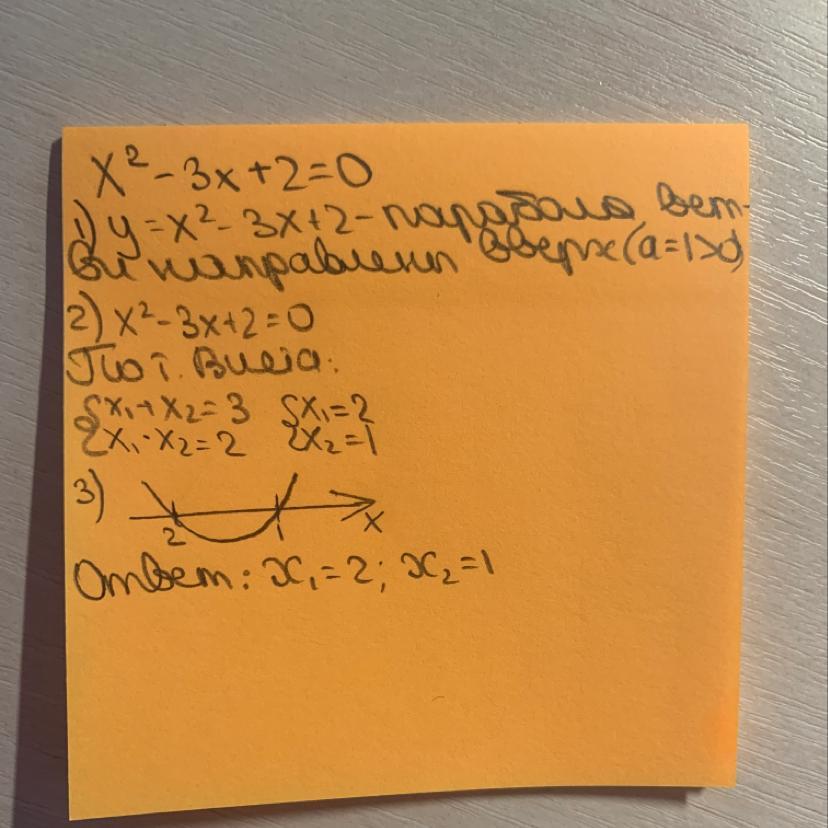 x² - 3x + 2 = 0
1) y = x² - 3x + 2 - парабола, вет-
ви направлены вверх (a = 1 > 0)
2) x² - 3x + 2 = 0
По т. Виета:
{x₁ + x₂ = 3 {x₁ = 2
{x₁ · x₂ = 2 {x₂ = 1
3)
2 1 x
Ответ: x₁ = 2; x₂ = 1